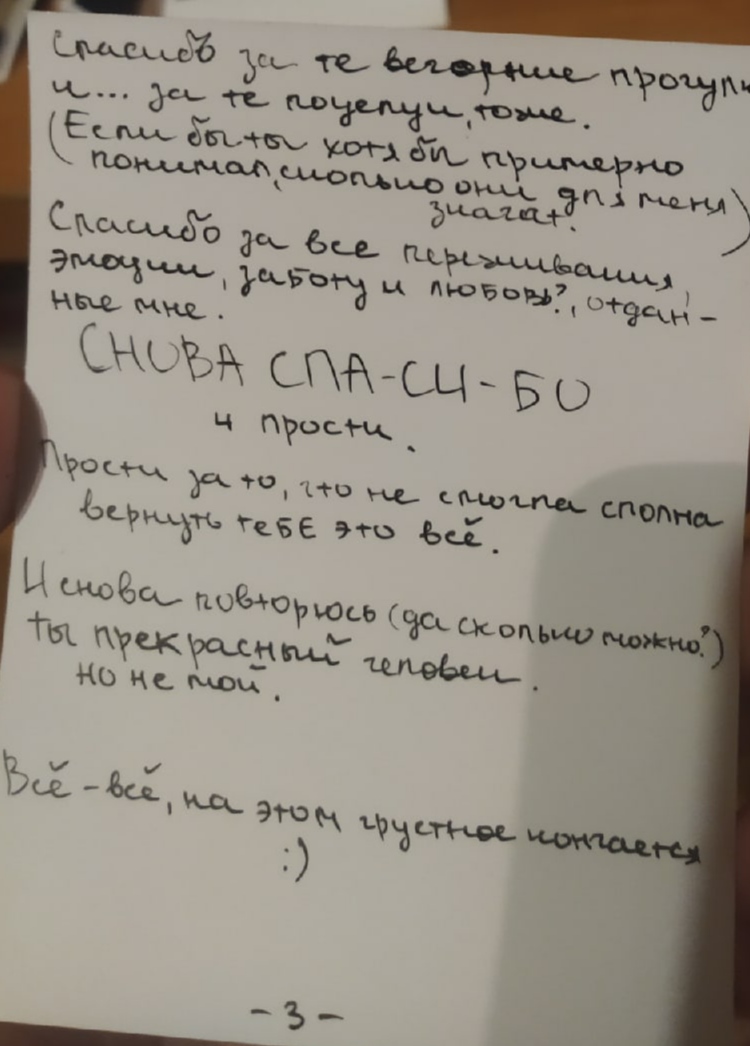 Спасибо за те вечерние прогулк
и... за те поцелуи, тоже.
(Если бы ты хотя бы примерно
понимал, сколько они для меня
значат.)
Спасибо за все переживания,
эмоции, заботу и любовь?, отдан-
ные мне.
СНОВА СПА-СИ-БО
и прости.
Прости за то, что не смогла сполна
вернуть тЕБЕ это всё.
И снова повторюсь (да сколько можно?)
ты прекрасный человек.
но не мой.
Всё-всё, на этом грустное кончается
:)
-3-